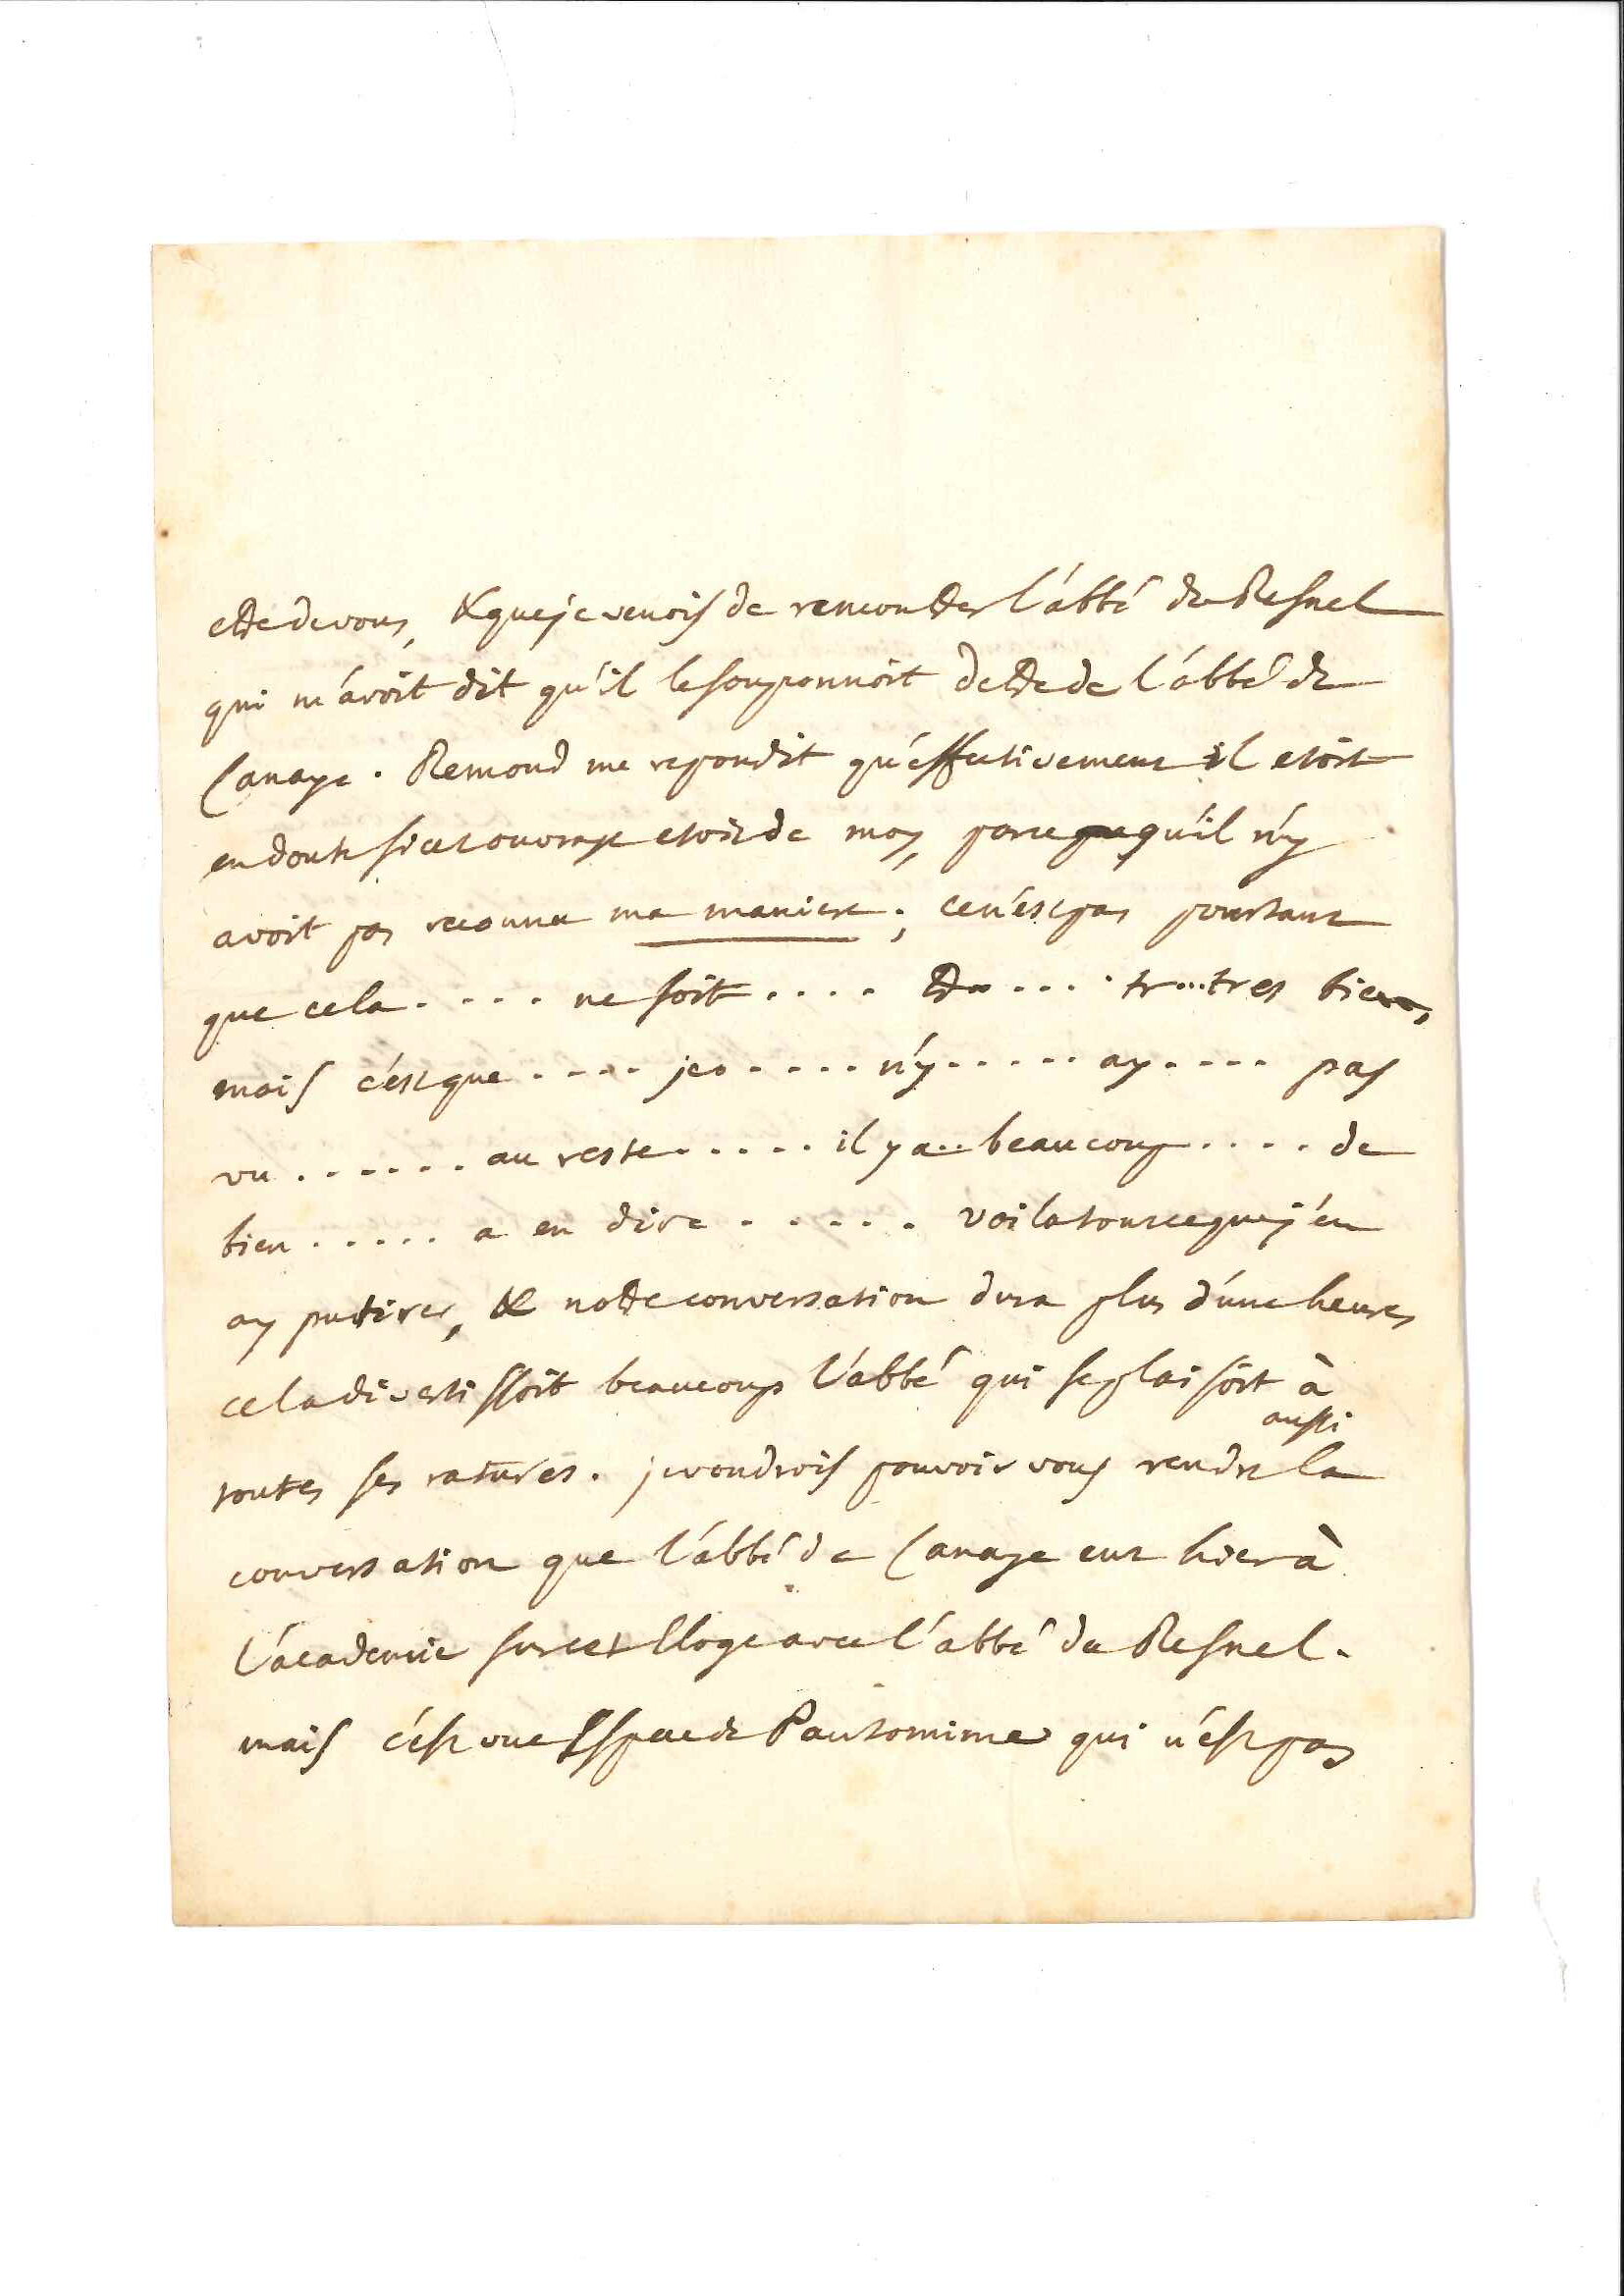 etre de vous, & que je venois de rencontrer l'abbé du Resnel
qui m'avoit dit qu'il le soupçonnoit d'etre de l'abbé de
Canaye. Remond me repondit qu'effectivement il etoit
en doute si cet ouvrage etoit de moy, parce qu'il n'y
avoit pas reconnu ma maniere; ce n'est pas pourtant
que cela .... ne soit .... tr .... tr...tres bien,
mais c'est que .... je .... n'y ..... ay .... pas
vu ...... au reste ..... il y a .. beaucoup .... de
bien ..... a en dire ...... voila tout ce que j'en
ay pu tirer, & notre conversation dura plus d'une heure,
cela divertissoit beaucoup l'abbé qui se plaisoit à
toutes ses ratures. je voudrois pouvoir vous rendre aussi la
conversation que l'abbé de Canaye eut hier à
l'academie sur cet Eloge avec l'abbé du Resnel.
mais c'est une Espece de Pantomime qui n'est pas